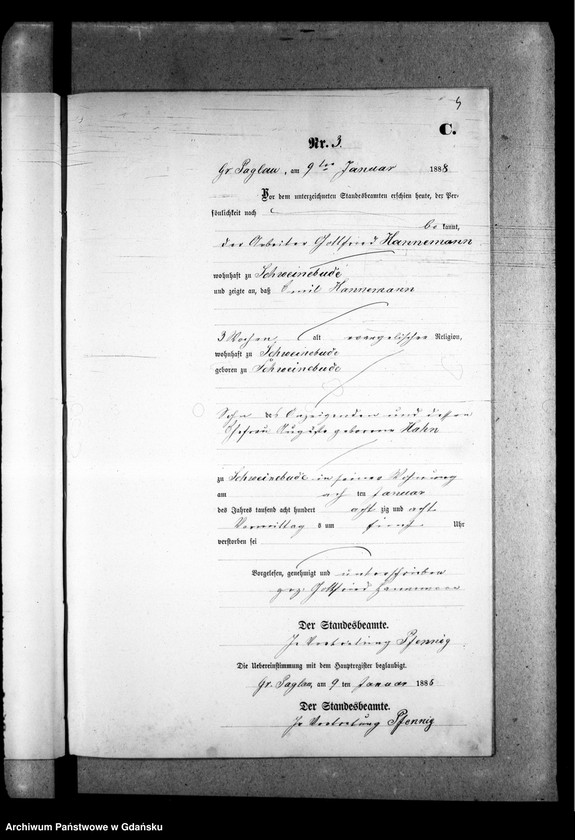 C.
Nr. 3.
Gr. Paglau, am 9 ten Januar 1888
Vor dem unterzeichneten Standesbeamten erschien heute, der Per-
sönlichkeit nach
be kannt,
der Arbeiter Gottfried Hannemann
wohnhaft zu Schweinebude
und zeigte an, daß Emil Hannemann
3 Wochen, alt evangelischer Religion,
wohnhaft zu Schweinebude
geboren zu Schweinebude
Sohn des Anzeigenden und dessen
Ehefrau Auguste geborene Hahn
zu Schweinebude in seiner Wohnung
am acht ten Januar
des Jahres tausend acht hundert acht zig und acht
Vormittag s um fünf Uhr
verstorben sei
Vorgelesen, genehmigt und unterschrieben
gez. Gottfried Hannemann
Der Standesbeamte.
In Vertretung Pfennig
Die Uebereinstimmung mit dem Hauptregister beglaubigt.
Gr. Paglau, am 9 ten Januar 188
Der Standesbeamte.
In Vertretung Pfennig
Archiwum Państwowe w Gdańsku